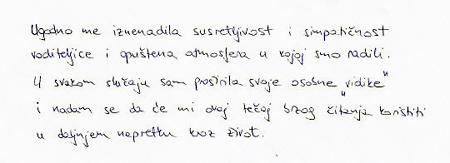 Ugodno me iznenadila susretljivost i simpatičnost
voditeljice i opuštena atmosfera u kojoj smo radili.
U svakom slučaju sam proširila svoje osobne „vidike"
i nadam se da će mi ovaj tečaj brzog čitanja koristiti
u daljnjem napretku kroz život.